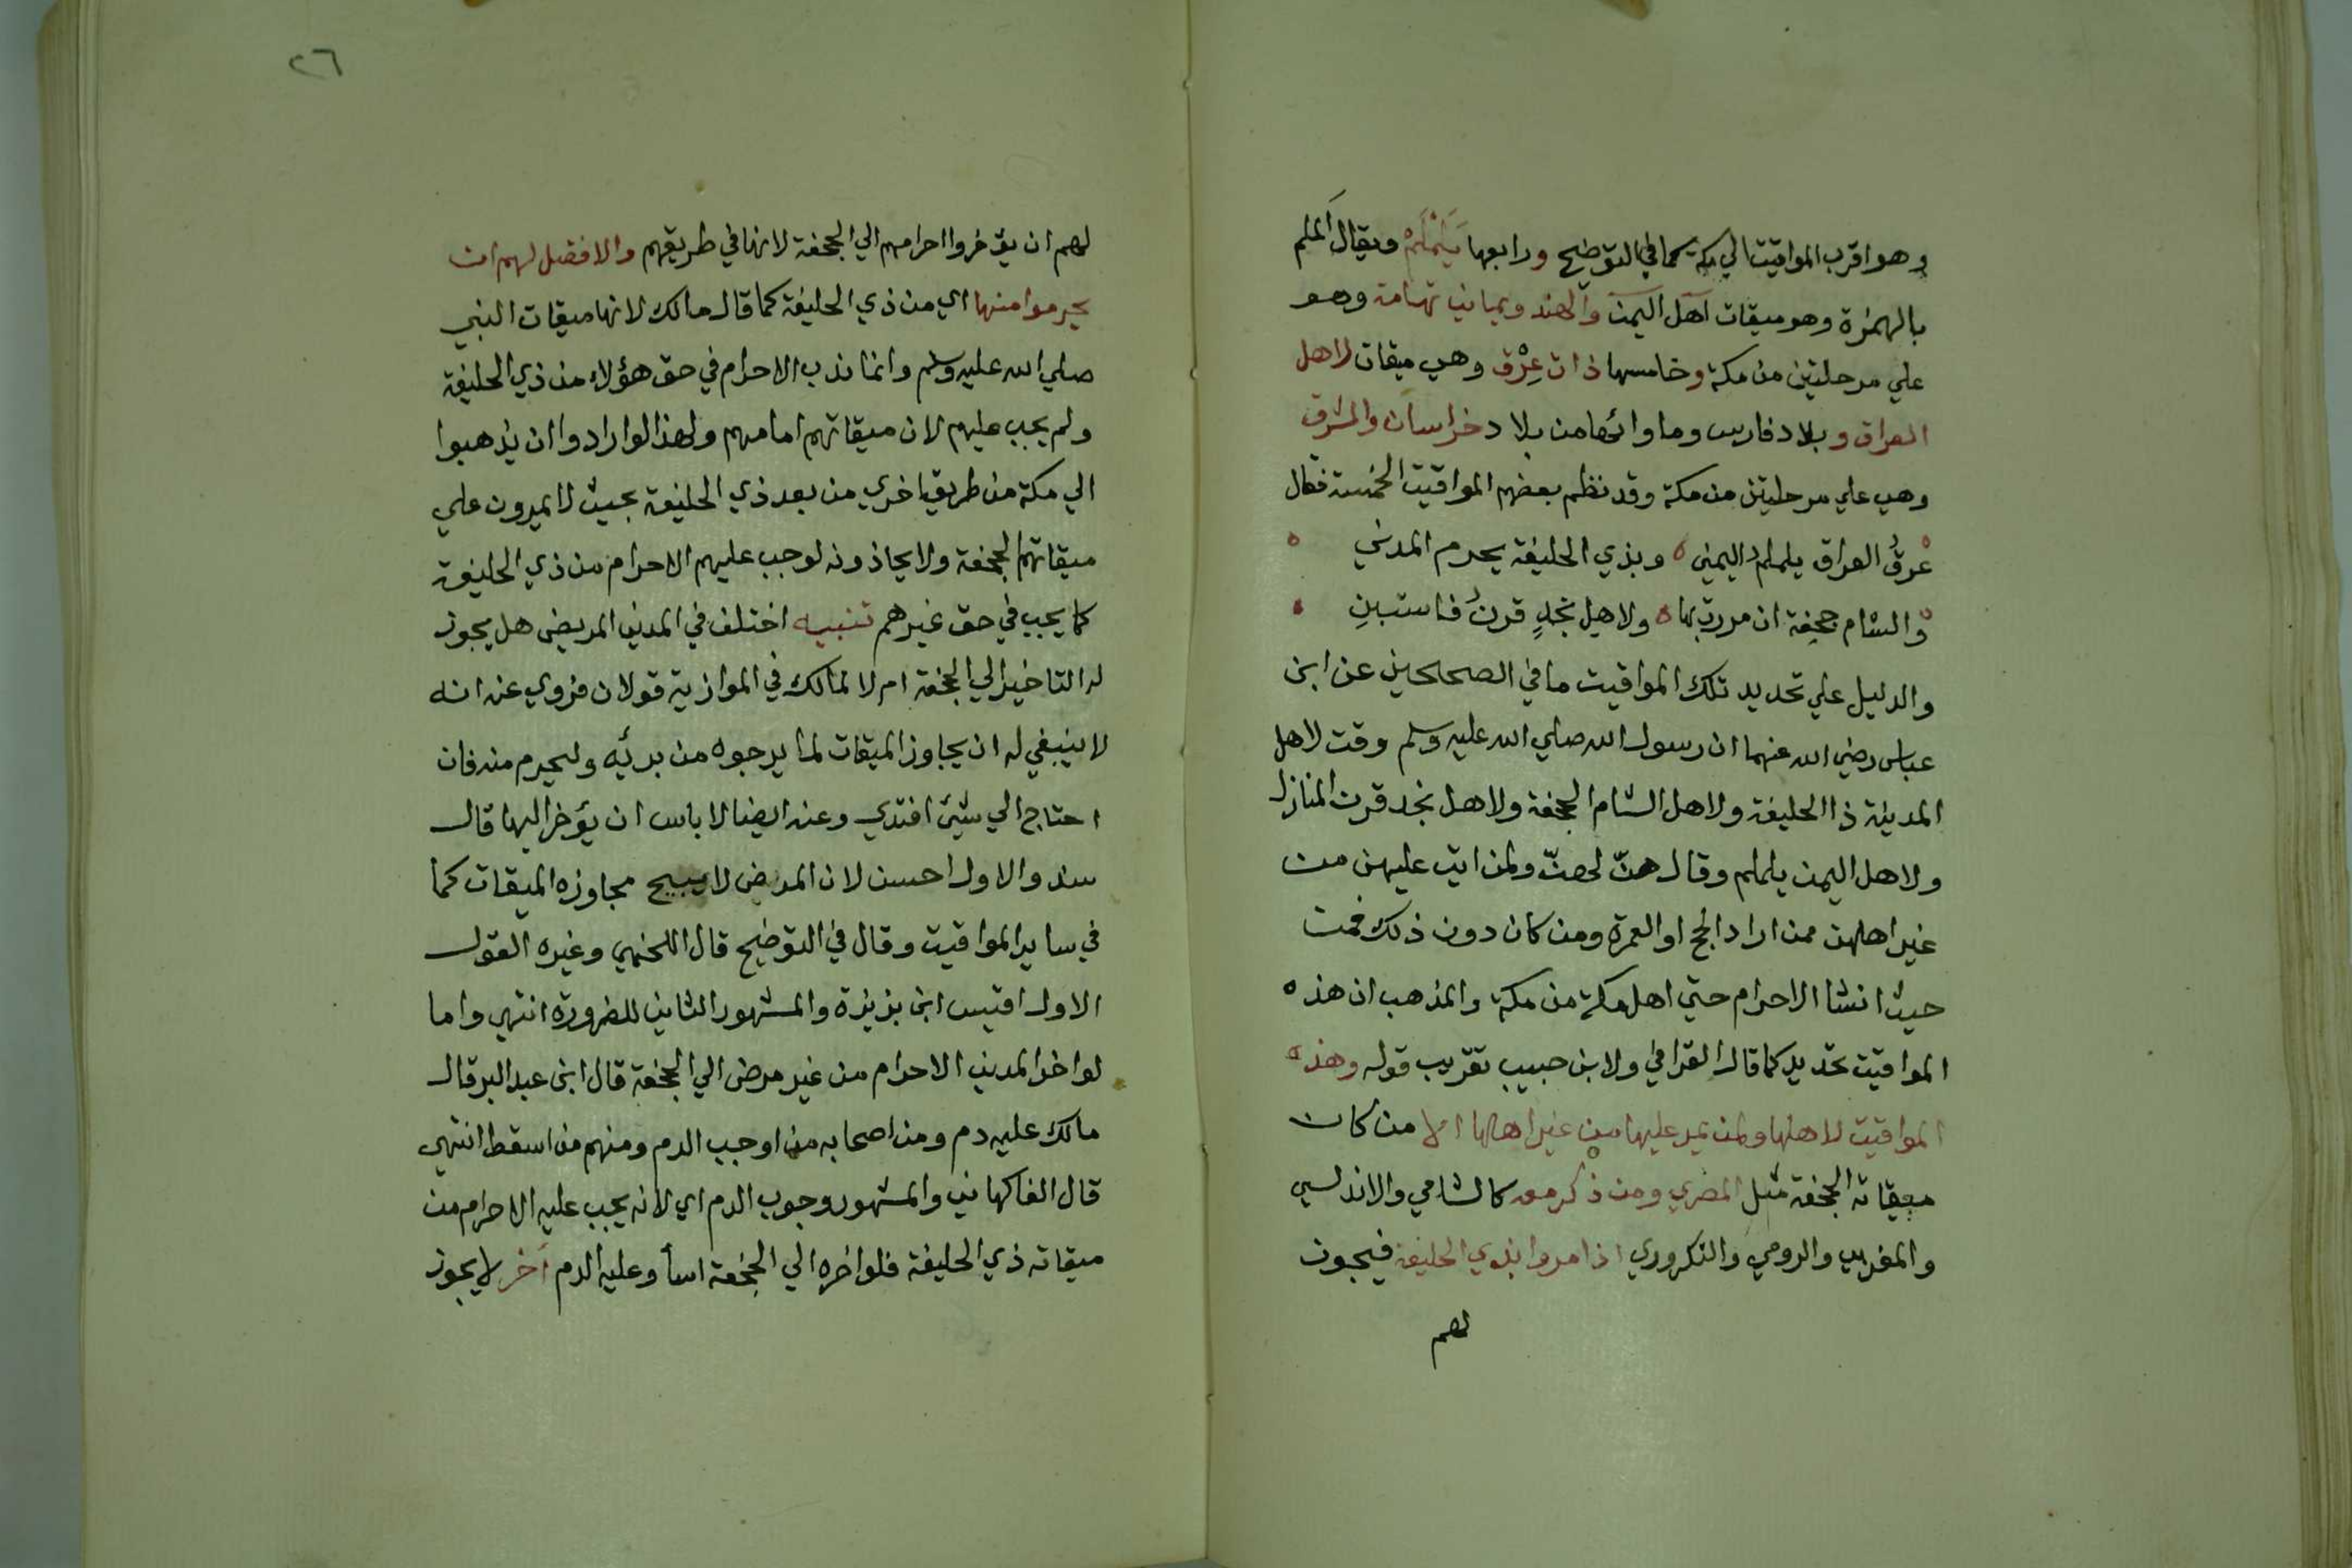 وهو اقرب المواقيت الي مكة كما في التوضيح ورابعها يَلَمْلَمْ ويقال اَلملم
بالهمزة وهو ميقات اهل اليمن والهند ويماني تهامة وهو
علي مرحلتين من مكة وخامسها ذات عِرْق وهي ميقات لاهل
العراق وبلاد فارس وما وائها من بلاد خراسان والمشرق
وهي علي مرحلتين من مكة وقد نظم بعضهم المواقيت الخمسة فقال
عرقُ العراق يلملم اليمني ه وبذي الحليفة يحرم المدني
والشام جحفة ان مررت بها ه ولاهل نجدٍ قرنُ فاستبنِ
والدليل علي تحديد تلك المواقيت ما في الصحيحين عن ابن
عباس رضي الله عنهما ان رسول الله صلي الله عليه وسلم وقت لاهل
المدينة ذا الحليفة ولاهل الشام الجحفة ولاهل نجد قرن المنازل
ولاهل اليمن يلملم وقال هنّ لهنّ ولمن اتي عليهن من
غير اهلهن ممن اراد الحج او العمرة ومن كان دون ذلك فمن
حيث انشا الاحرام حتي اهل مكة من مكة والمذهب ان هذه
المواقيت تحديد كما قال القرافي ولابن حبيب تقريب قوله وهذه
المواقيت لاهلها ولمن يمر عليها من غير اهلها الا من كان
ميقاته الجحفة مثل المصري ومن ذكر معه كالشامي والاندلسي
والمغربي والرومي والتكروري اذا مروا بذي الحليفة فيجوز
لهم
٢٦
لهم ان يؤخروا احرامهم الي الجحفة لانها في طريقهم والافضل لهم ان
يحرموا منها اي من ذي الحليفة كما قال مالك لانها ميقات النبي
صلي الله عليه وسلم وانما ندب الاحرام في حق هؤلاء من ذي الحليفة
ولم يجب عليهم لان ميقاتهم امامهم ولهذا لو ارادوا ان يذهبوا
الي مكة من طريق اخري من بعد ذي الحليفة بحيث لا يمرون علي
ميقاتهم الجحفة ولا يحاذونه لوجب عليهم الاحرام من ذي الحليفة
كما يجب في حق غيرهم تنبيه اختلف في المدني المريض هل يجوز
له التاخير الي الجحفة ام لا لمالك في الموازية قولان فروي عنه انه
لا ينبغي له ان يجاوز الميقات لما يرجوه من برئه وليحرم منه فان
احتاج الي شيئ افتدي وعنه ايضا لا باس ان يؤخر اليها قال
سند والاول احسن لان المريض لا يبيح مجاوزه الميقات كما
في ساير المواقيت وقال في التوضيح قال اللخمي وغيره القول
الاول اقيس ابن بزيزة والمشهور الثاني للضرورة انتهي واما
لو اخر المدني الاحرام من غير مرض الي الجحفة قال ابن عبد البر قال
مالك عليه دم ومن اصحابه من اوجب الدم ومنهم من اسقط انتهي
قال الفاكهاني والمشهور وجوب الدم اي لانه يجب عليه الاحرام من
ميقاته ذي الحليفة فلو اخره الي الجحفة اسأ وعليه الدم اخر لا يجوز